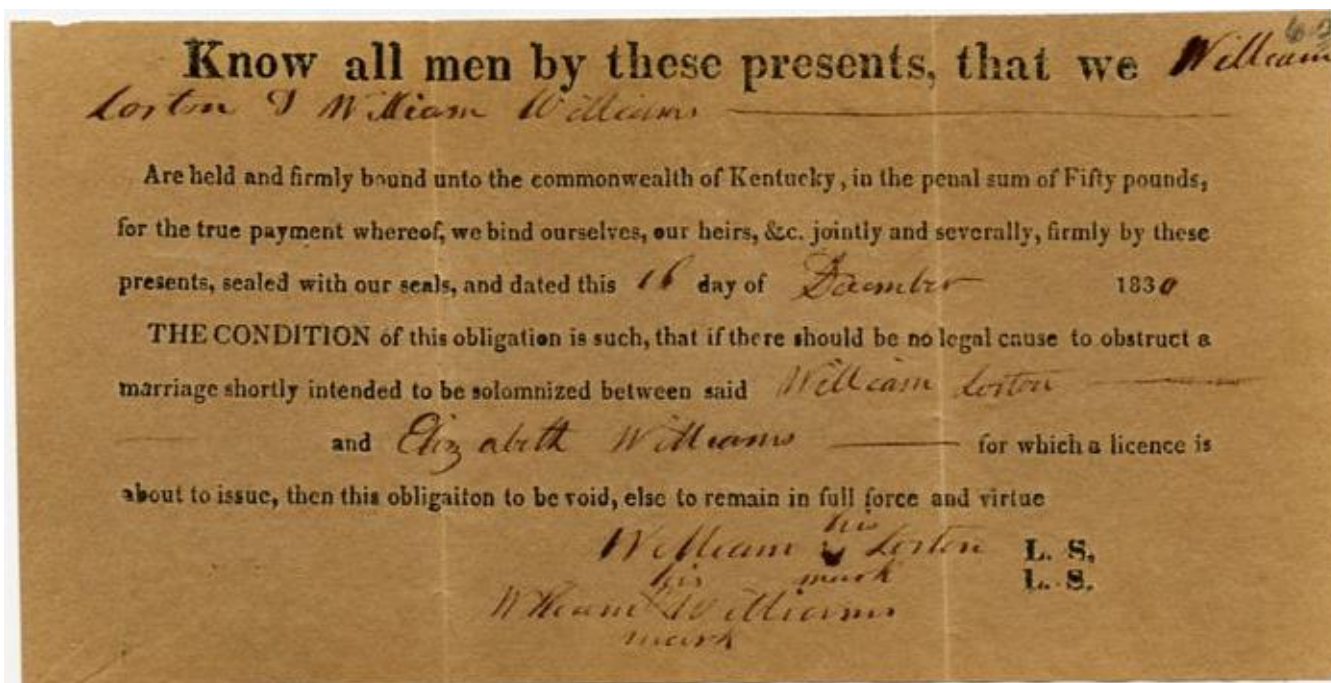 Know all men by these presents, that we William
Lorton & William Williams
Are held and firmly bound unto the commonwealth of Kentucky, in the penal sum of Fifty pounds,
for the true payment whereof, we bind ourselves, our heirs, &c. jointly and severally, firmly by these
presents, sealed with our seals, and dated this 16 day of December 1830
THE CONDITION of this obligation is such, that if there should be no legal cause to obstruct a
marriage shortly intended to be solomnized between said William Lorton
and Elizabeth Williams for which a licence is
about to issue, then this obligaiton to be void, else to remain in full force and virtue
his
William Lorton L. S.
his mark L. S.
William Williams
mark